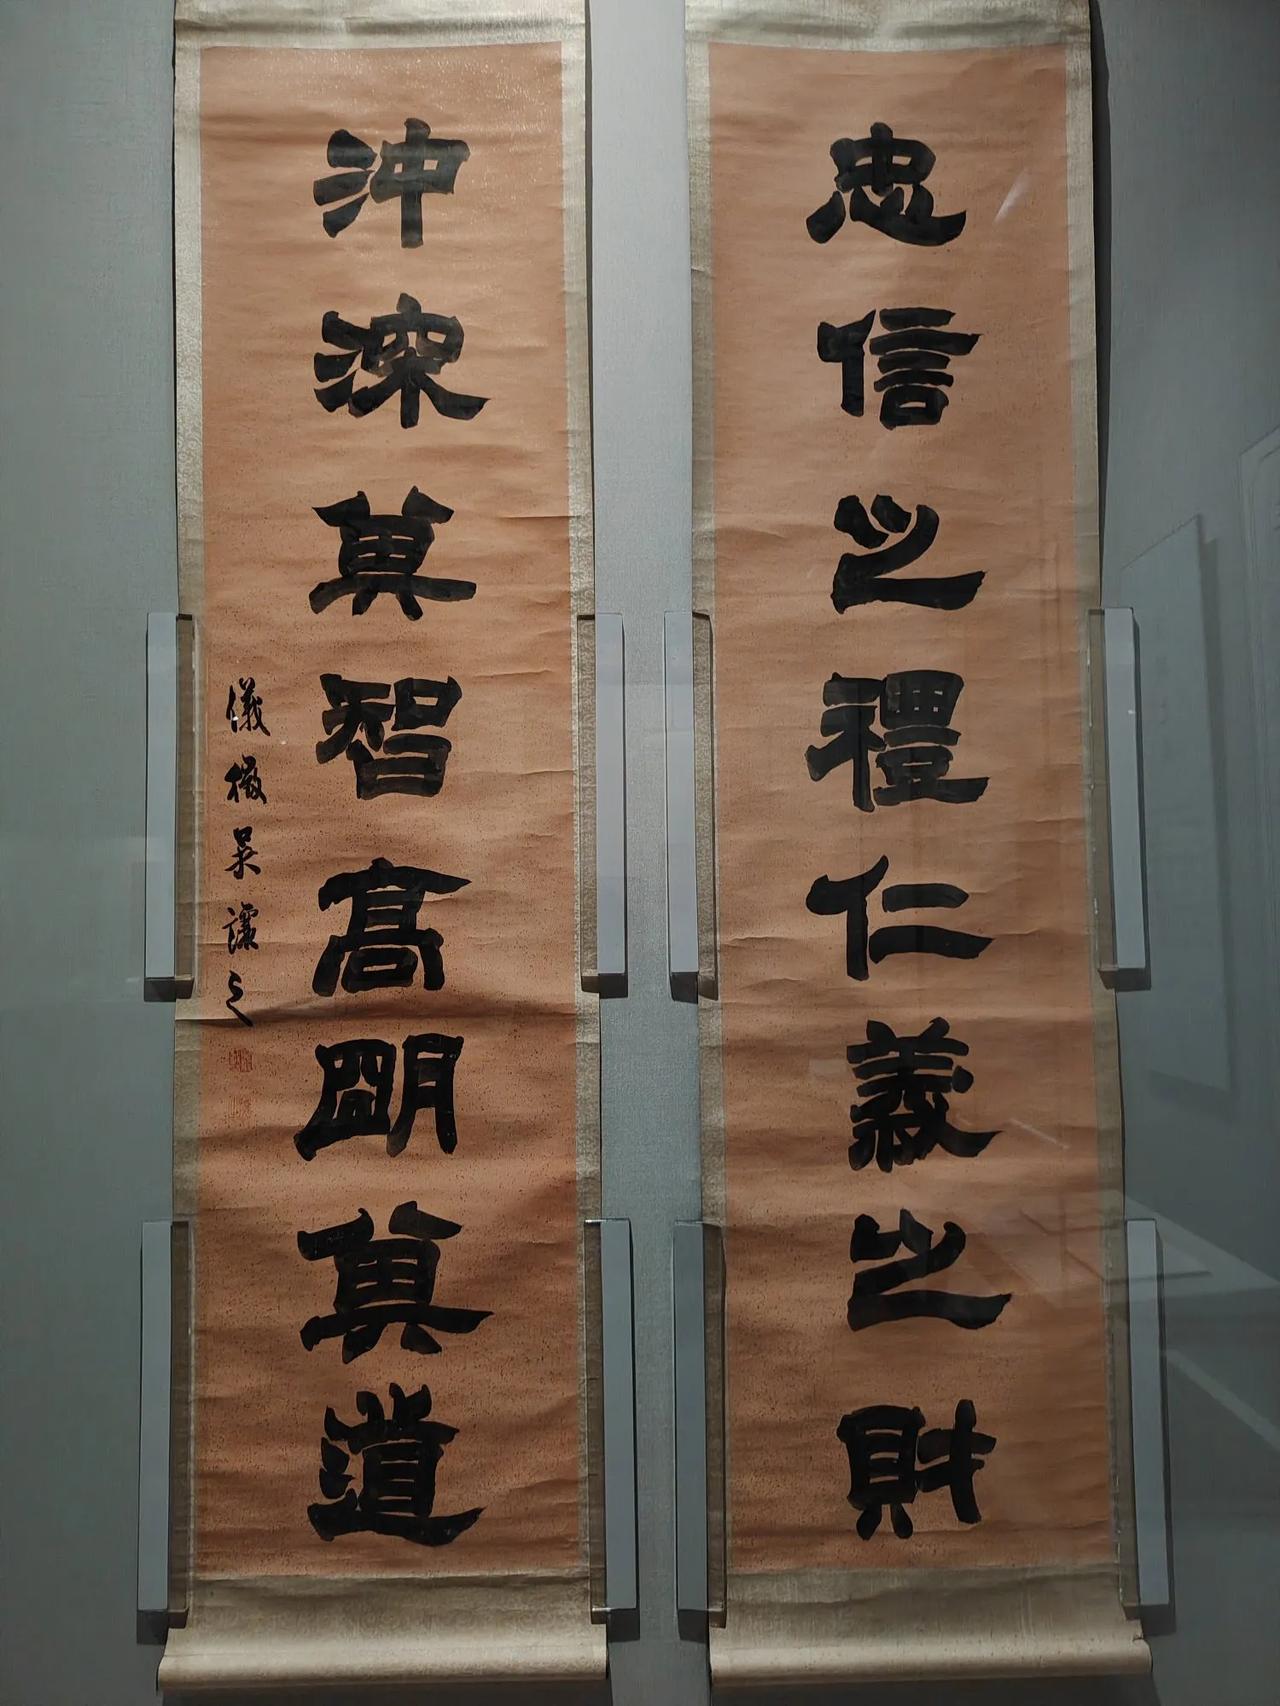 忠信之禮仁義之財
沖深其智高明其道
儀徵吳讓之